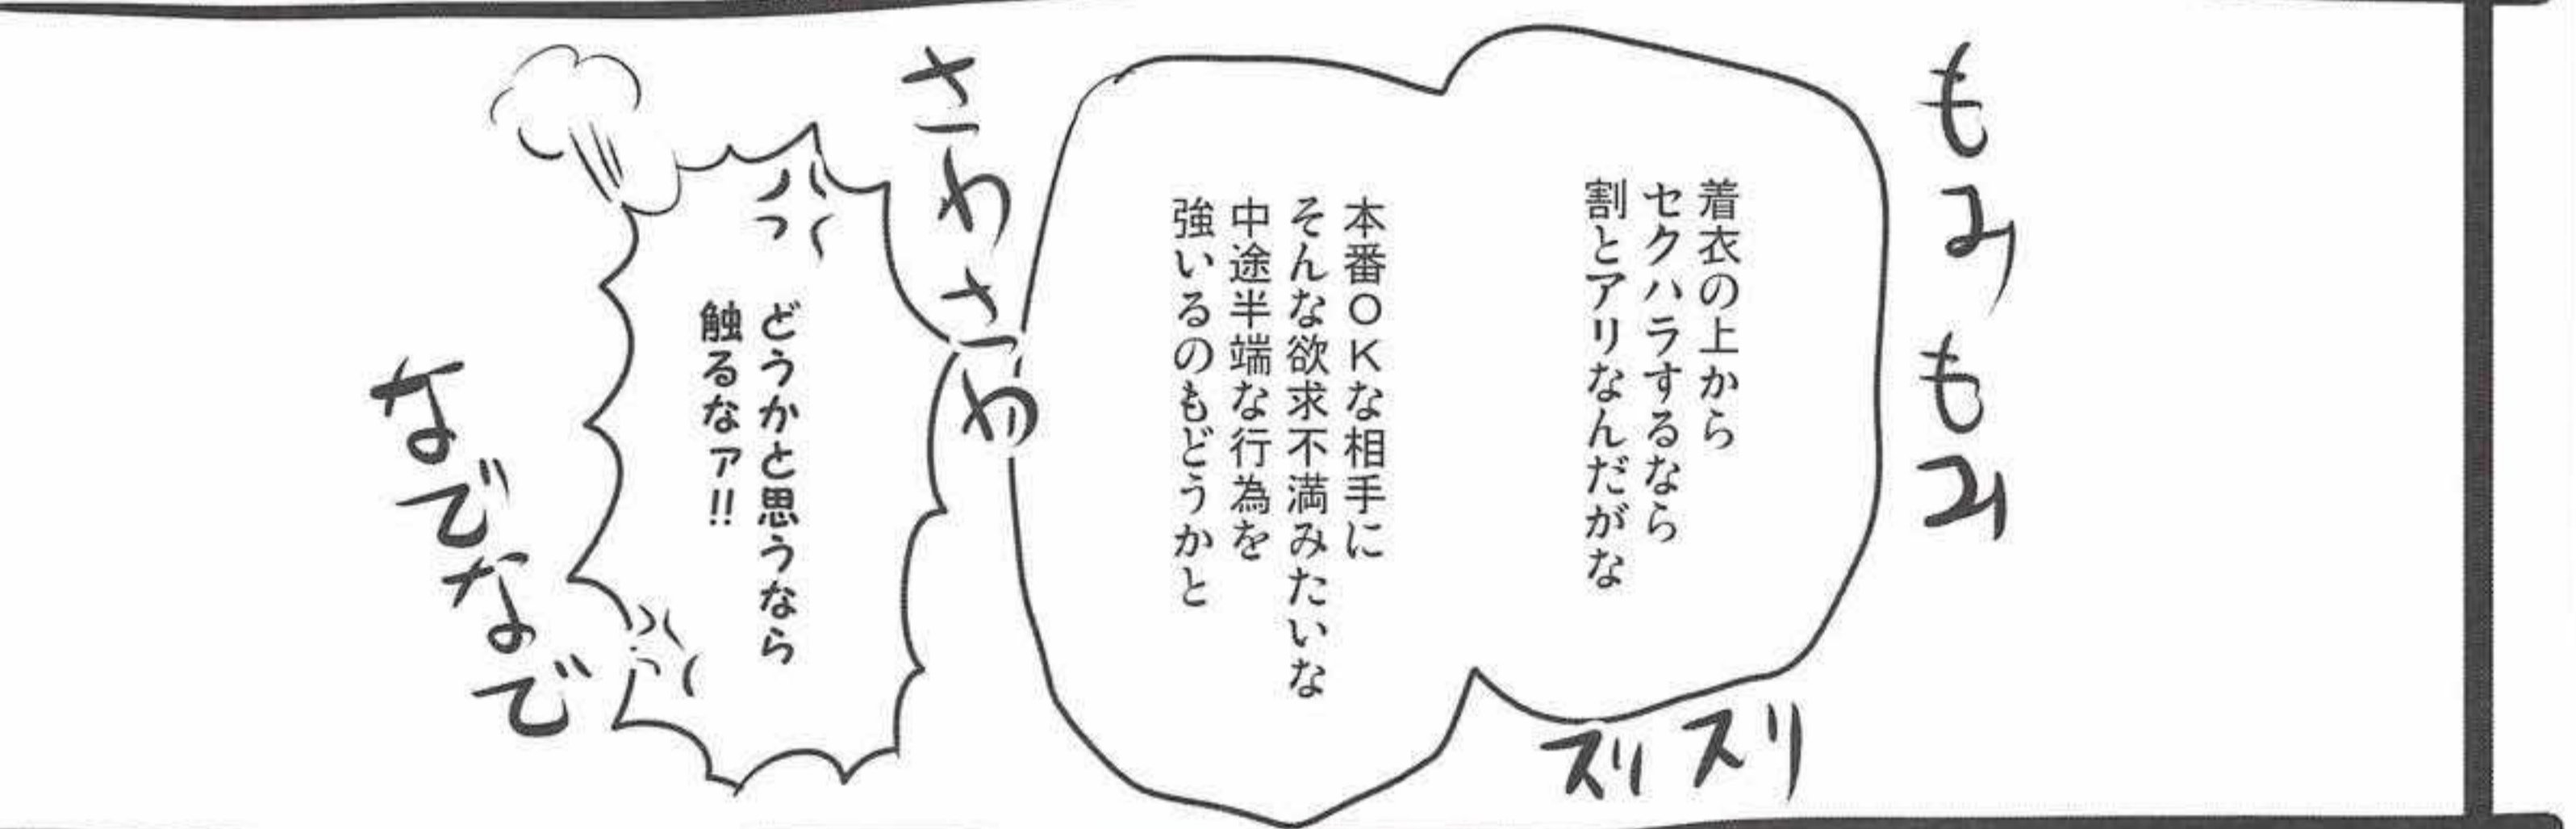 もみもみ
着衣の上から
セクハラするなら
割とアリなんだがな
スリスリ
本番OKな相手に
そんな欲求不満みたいな
中途半端な行為を
強いるのもどうかと
さわさわ
どうかと思うなら
触るなァ!!
なでなで